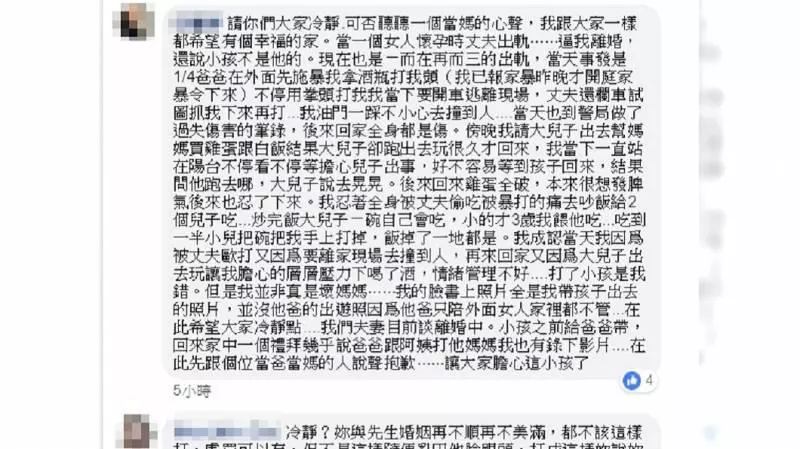 請你們大家冷靜.可否聽聽一個當媽的心聲，我跟大家一樣
都希望有個幸福的家。當一個女人懷孕時丈夫出軌⋯⋯逼我離婚，
還說小孩不是他的。現在也是一而在再而三的出軌，當天事發是
1/4爸爸在外面先施暴我拿酒瓶打我頭（我已報家暴昨晚才開庭家
暴令下來）不停用拳頭打我我當下要開車逃離現場，丈夫還攔車試
圖抓我下來再打...我油門一踩不小心去撞到人....當天也到警局做了
過失傷害的筆錄，後來回家全身都是傷。傍晚我請大兒子出去幫媽
媽買雞蛋跟白飯結果大兒子卻跑出去玩很久才回來，我當下一直站
在陽台不停看不停等擔心兒子出事，好不容易等到孩子回來，結果
問他跑去哪，大兒子說去晃晃。後來回來雞蛋全破，本來很想發脾
氣後來也忍了下來。我忍著全身被丈夫偷吃被暴打的痛去吵飯給2
個兒子吃...炒完飯大兒子一碗自己會吃，小的才3歲我餵他吃....吃到
一半小兒把碗把我手上打掉，飯掉了一地都是。我成認當天我因為
被丈夫歐打又因為要離家現場去撞到人，再來回家又因為大兒子出
去玩讓我擔心的層層壓力下喝了酒，情緒管理不好....打了小孩是我
錯。但是我並非真是壞媽媽⋯⋯我的臉書上照片全是我帶孩子出去
的照片，並沒他爸的出遊照因為他爸只陪外面女人家裡都不管...在
此希望大家冷靜點....我們夫妻目前談離婚中。小孩之前給爸爸帶，
回來家中一個禮拜幾乎說爸爸跟阿姨打他媽媽我也有錄下影片....在
此先跟個位當爸當媽的人說聲抱歉⋯⋯讓大家擔心這小孩了
4
5小時
冷靜？妳與先生婚姻再不順再不美滿，都不該這樣